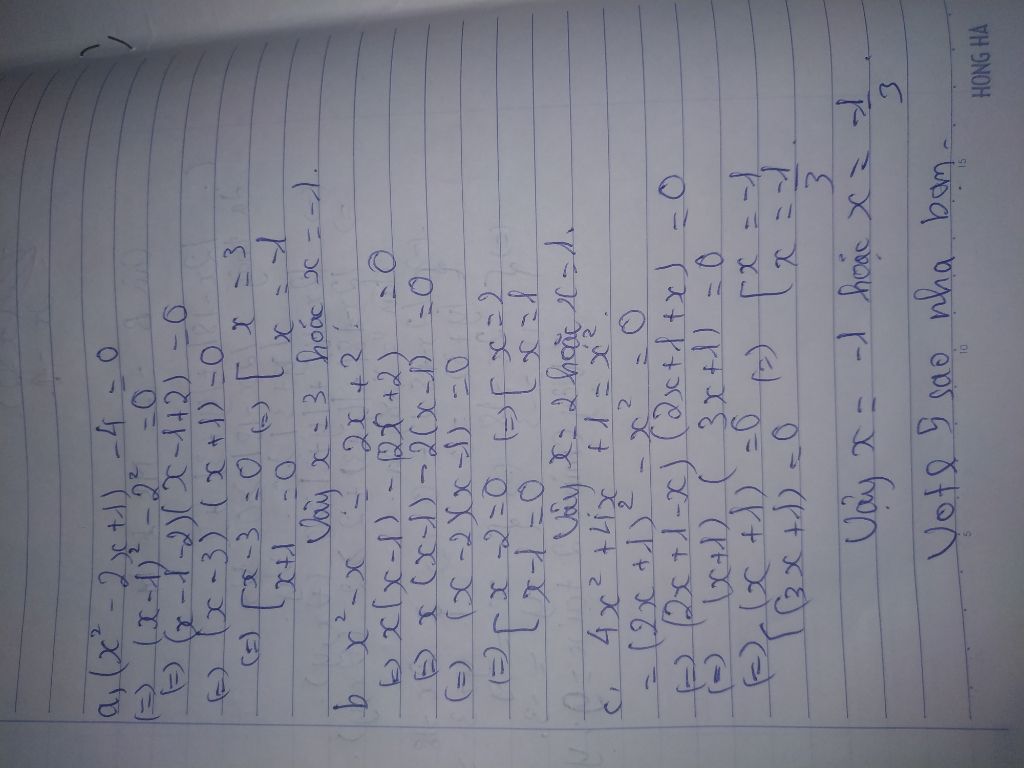 a, (x² - 2x + 1) - 4 = 0
(=) (x-1)² - 2² = 0
(=) (x-1-2)(x-1+2) = 0
(=) (x-3)(x+1) = 0
(=) [ x-3 = 0 (=) [ x = 3
x+1 = 0 x = -1
Vậy x = 3 hoặc x = -1.
b x² - x = - 2x + 2
(=) x(x-1) - (2x+2) = 0
(=) x(x-1) - 2(x-1) = 0
(=) (x-2)(x-1) = 0
(=) [ x-2 = 0 (=) [ x = 2
x-1 = 0 x = 1
Vậy x = 2 hoặc x = 1.
c, 4x² + 4x + 1 = x².
= (2x+1)² - x² = 0
(=) (2x+1-x)(2x+1+x) = 0
(=) (x+1)(3x+1) = 0
(=) [ (x+1) = 0 (=) [ x = -1
(3x+1) = 0 x = -1/3.
Vậy x = -1 hoặc x = -1/3.
Vote 5 sao nha bạn.
5 10 15
HONG HA